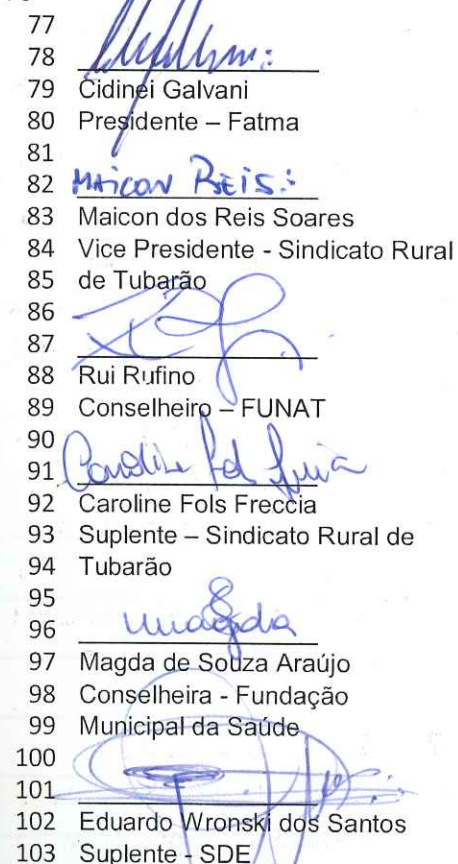 77
78
79 Cidinei Galvani
80 Presidente – Fatma
81
82 Maicon Reis
83 Maicon dos Reis Soares
84 Vice Presidente - Sindicato Rural
85 de Tubarão
86
87
88 Rui Rufino
89 Conselheiro – FUNAT
90
91 Caroline Fols Freccia
92 Caroline Fols Freccia
93 Suplente – Sindicato Rural de
94 Tubarão
95
96 Magda
97 Magda de Souza Araújo
98 Conselheira - Fundação
99 Municipal da Saúde
100
101
102 Eduardo Wronski dos Santos
103 Suplente - SDE